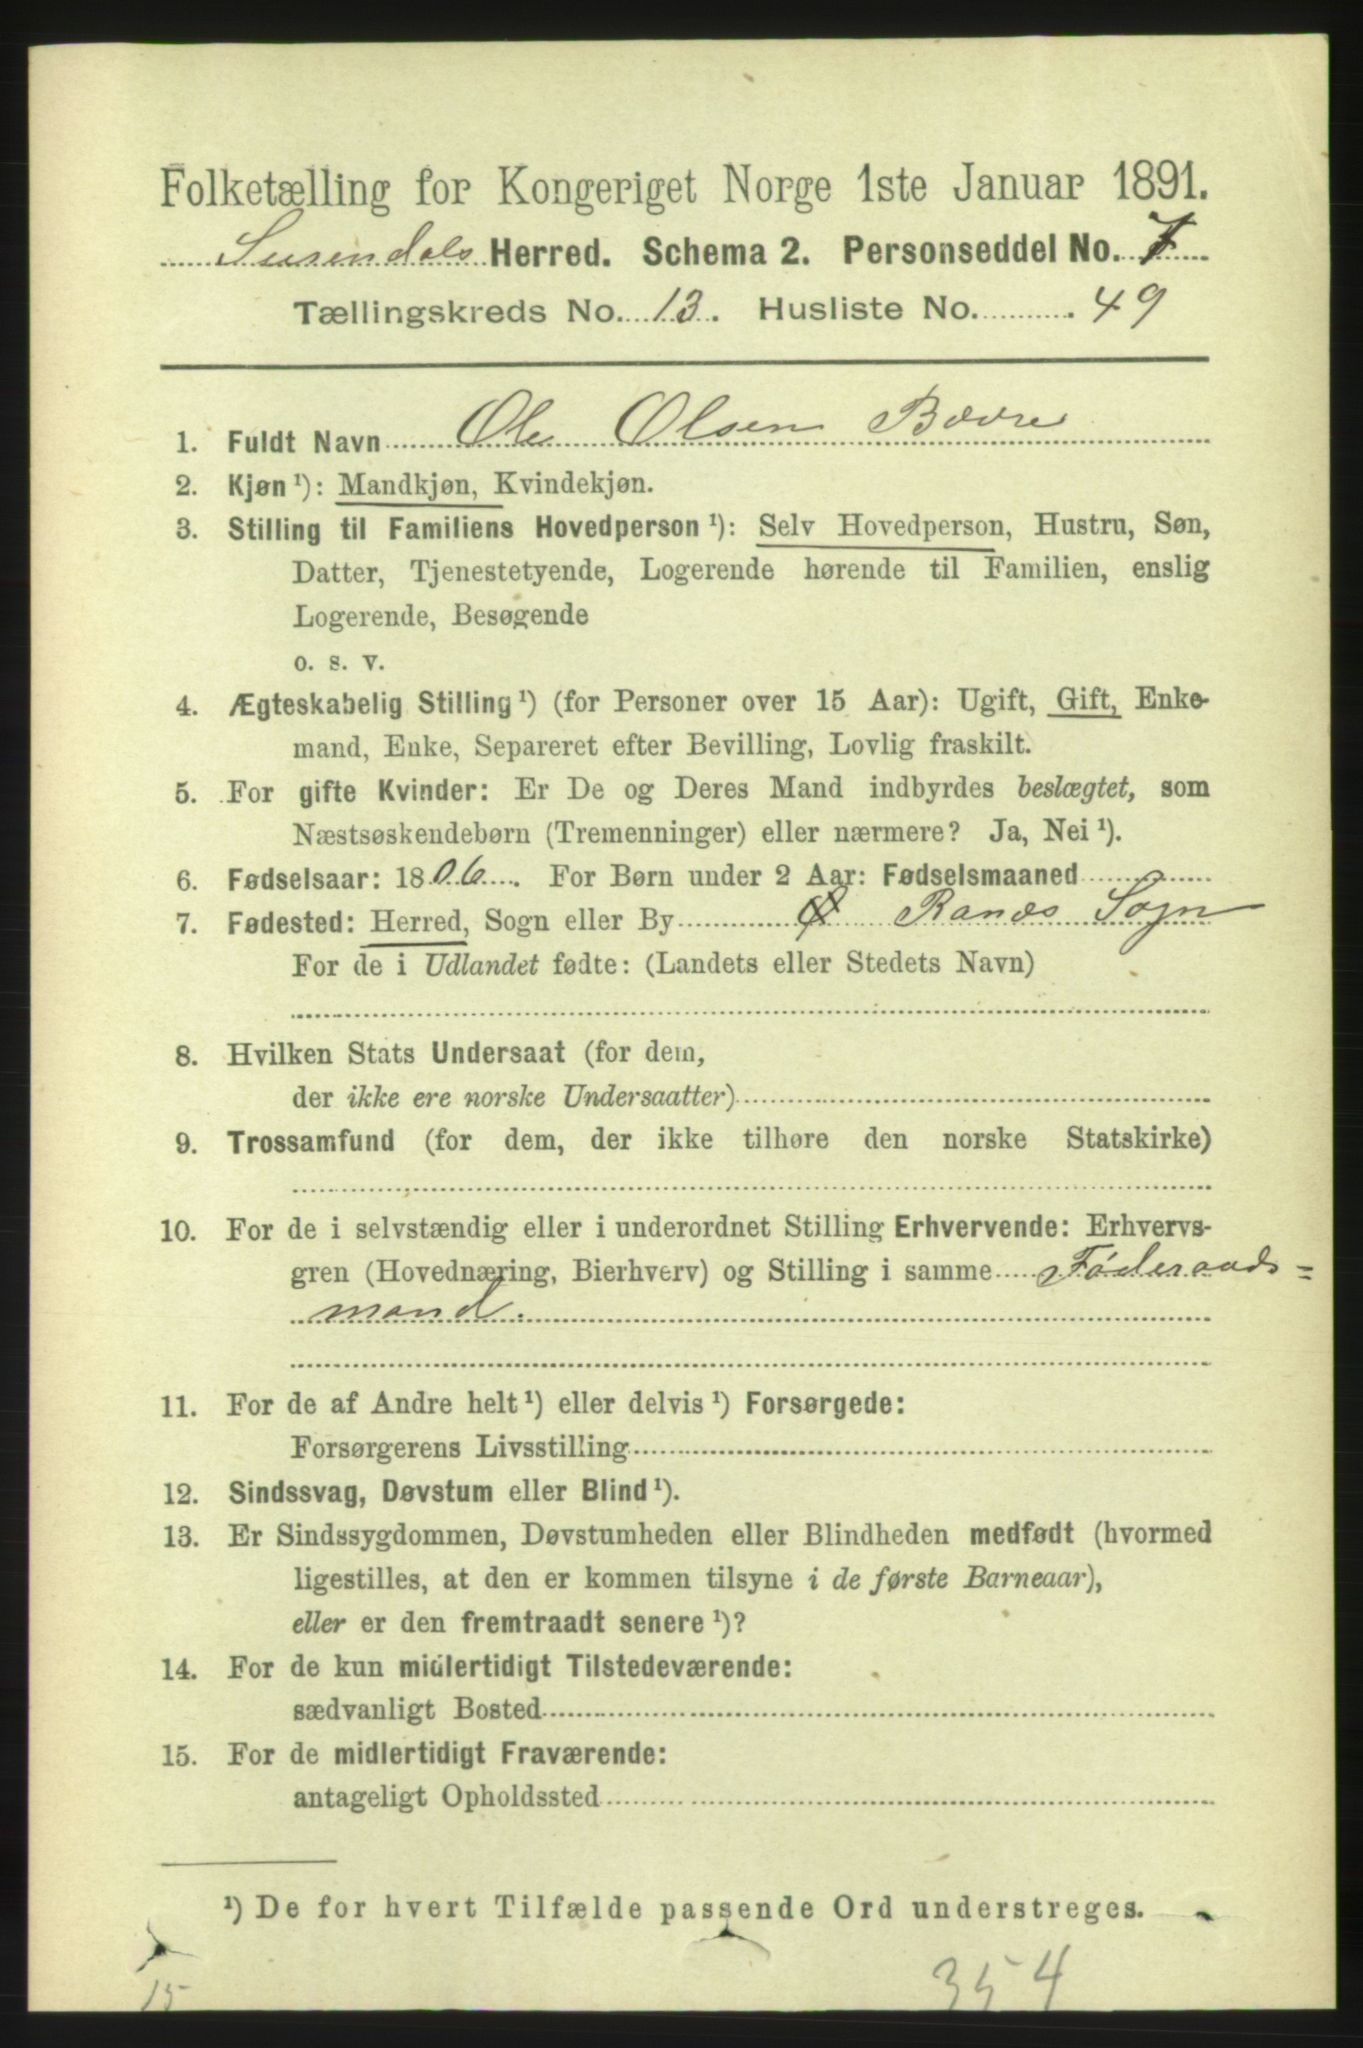 Folketælling for Kongeriget Norge 1ste Januar 1891.
Surendals Herred. Schema 2. Personseddel No. 7
Tællingskreds No. 13. Husliste No. 49
1. Fuldt Navn Ole Olsen Bævre
2. Kjøn ¹): Mandkjøn, Kvindekjøn.
3. Stilling til Familiens Hovedperson ¹): Selv Hovedperson, Hustru, Søn,
Datter, Tjenestetyende, Logerende hørende til Familien, enslig
Logerende, Besøgende
o. s. v.
4. Ægteskabelig Stilling ¹) (for Personer over 15 Aar): Ugift, Gift, Enke-
mand, Enke, Separeret efter Bevilling, Lovlig fraskilt.
5. For gifte Kvinder: Er De og Deres Mand indbyrdes beslægtet, som
Næstsøskendebørn (Tremenninger) eller nærmere? Ja, Nei ¹).
6. Fødselsaar: 1806. For Børn under 2 Aar: Fødselsmaaned
7. Fødested: Herred, Sogn eller By Ranæs Sogn
For de i Udlandet fødte: (Landets eller Stedets Navn)
8. Hvilken Stats Undersaat (for dem,
der ikke ere norske Undersaatter)
9. Trossamfund (for dem, der ikke tilhøre den norske Statskirke)
10. For de i selvstændig eller i underordnet Stilling Erhvervende: Erhvervs-
gren (Hovednæring, Bierhverv) og Stilling i samme Föderaads=
mand.
11. For de af Andre helt ¹) eller delvis ¹) Forsørgede:
Forsørgerens Livsstilling
12. Sindssvag, Døvstum eller Blind ¹).
13. Er Sindssygdommen, Døvstumheden eller Blindheden medfødt (hvormed
ligestilles, at den er kommen tilsyne i de første Barneaar),
eller er den fremtraadt senere ¹)?
14. For de kun midlertidigt Tilstedeværende:
sædvanligt Bosted
15. For de midlertidigt Fraværende:
antageligt Opholdssted
¹) De for hvert Tilfælde passende Ord understreges.
354
15